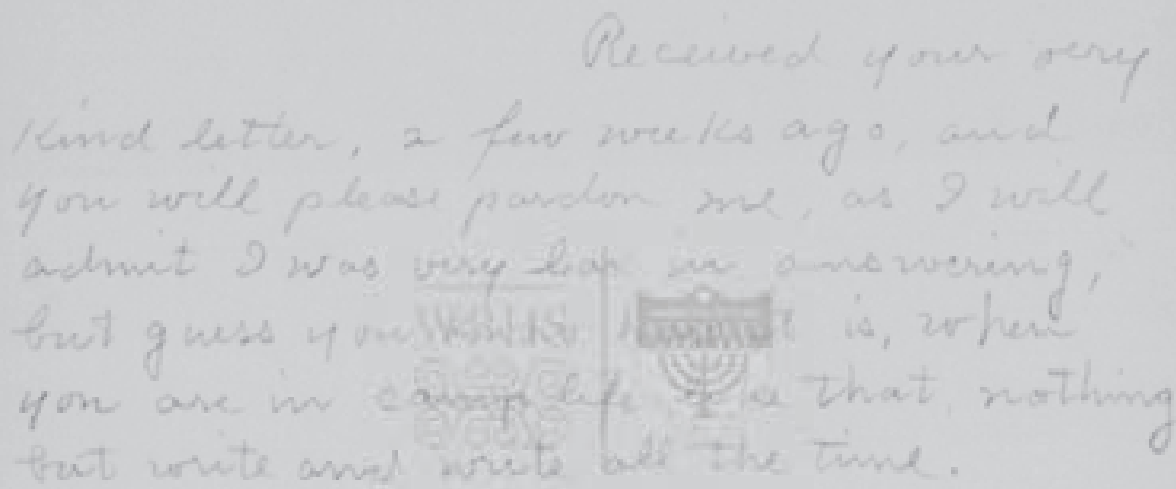 Received your very
Kind letter, a few weeks ago, and
you will please pardon me, as I will
admit I was very lax in answering,
but guess you is, when
you are in camp life like that, nothing
but write and write all the time.